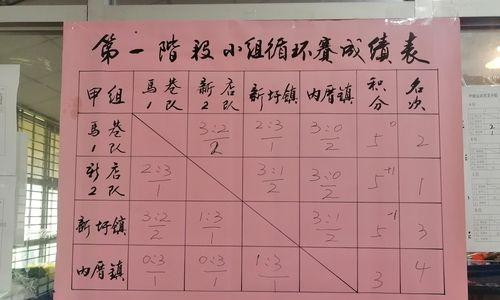 第一階段小组循环赛成绩表
甲组 馬巷1队 新店2队 新圩镇 内厝镇 积分 名次
馬巷1队 3:2/2 2:3/1 3:0/2 5⁰ 2
新店2队 2:3/1 3:1/2 3:0/2 5⁺¹ 1
新圩镇 3:2/2 1:3/1 3:1/2 5⁻¹ 3
内厝镇 0:3/1 0:3/1 1:3/1 3 4